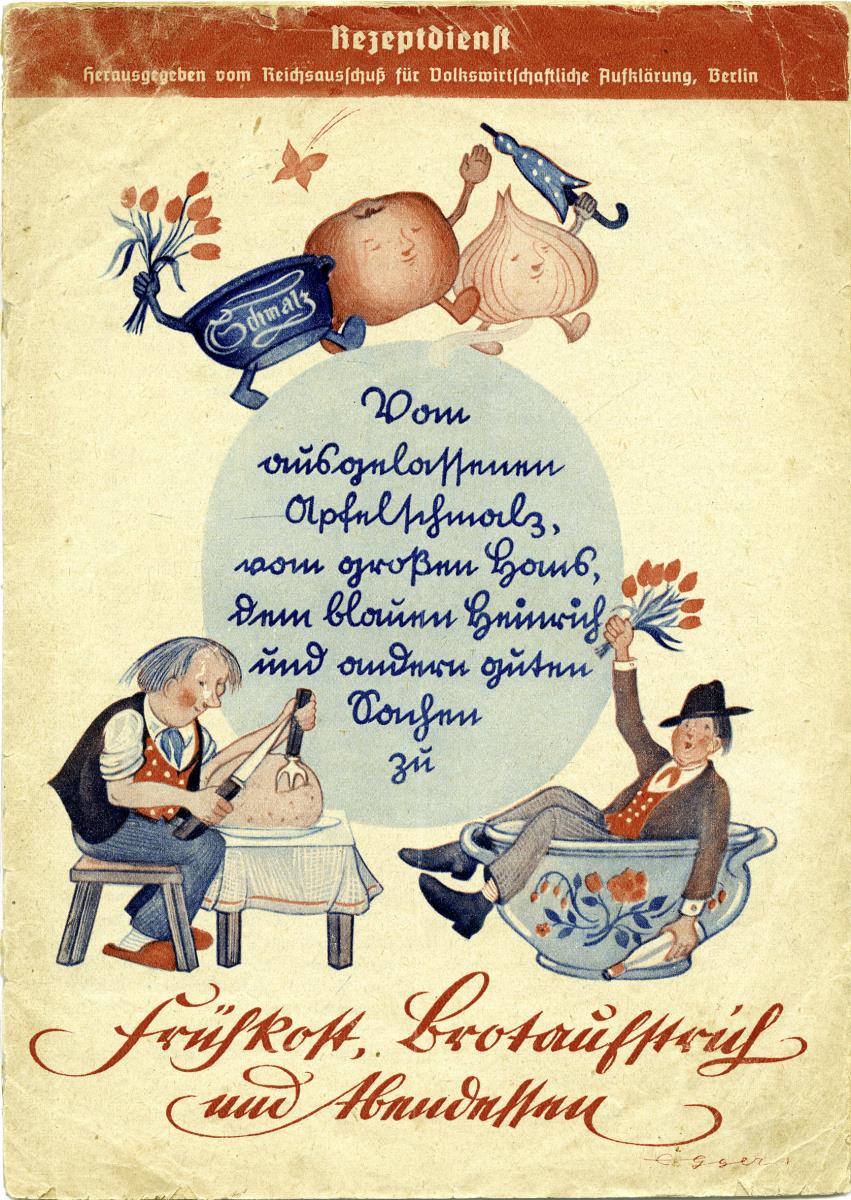 Rezeptdienst
Herausgegeben vom Reichsausschuß für Volkswirtschaftliche Aufklärung, Berlin
Schmalz
Vom
ausgelassenen
Apfelschmalz,
vom großen Hans,
dem blauen Heinrich
und andern guten
Sachen
zu
Frühkost, Brotaufstrich
und Abendessen